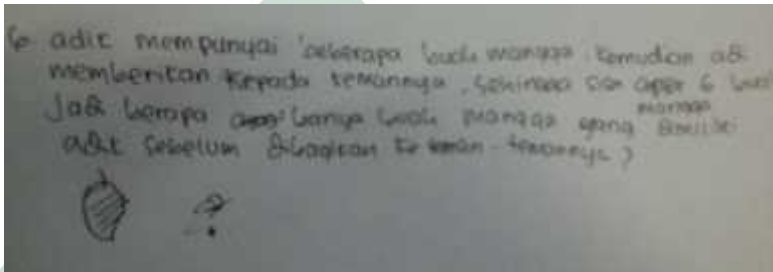 6 adit mempunyai beberapa buah mangga. kemudian adit
memberikan kepada temannya, sehinga 6 buah
Jadi berapa banya buah mangga yang dimiliki
mangga
adit sebelum dibagikan ke teman-temannya?
?